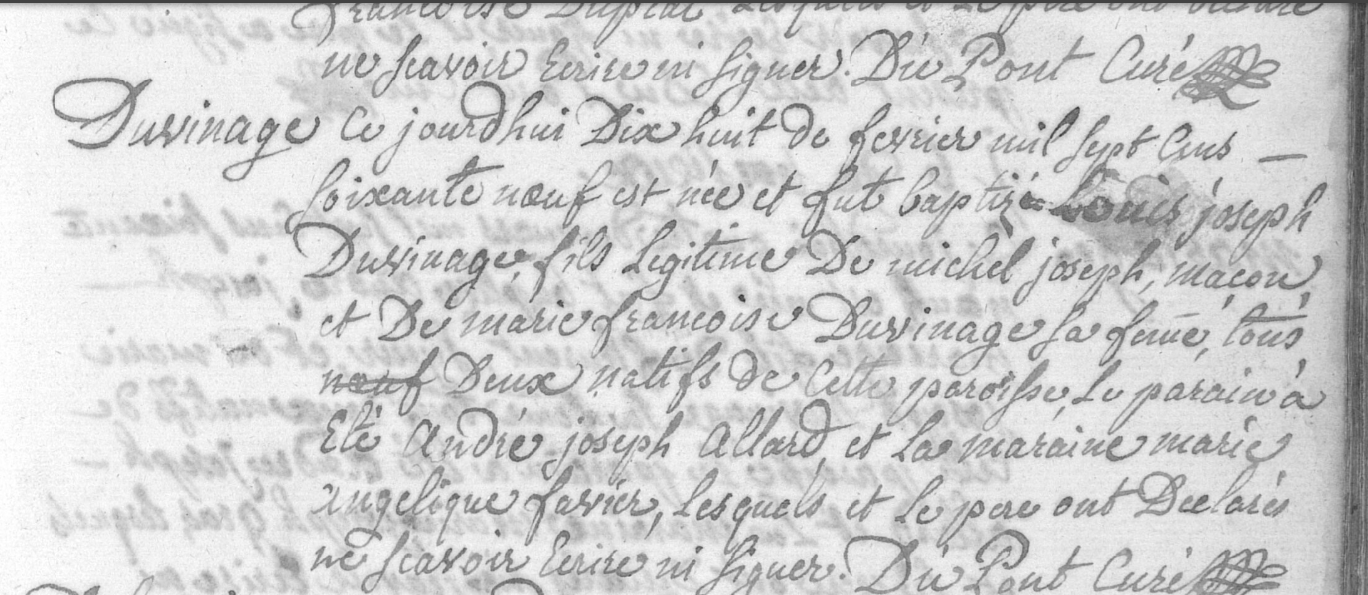 françoise Duprat lesquels et Le pere ont Declaré
ne sçavoir Ecrire ni signer. Du Pont Curé
Duvinage Ce jourdhui Dix huit de fevrier mil sept Cens —
soixante nœuf est née et fut baptizé Louis joseph
Duvinage, fils Legitime De michel joseph, maçon,
et De marie françoise Duvinage sa feme, tous
nœuf Deux natifs de Cette paroisse, Le parain à
Eté André joseph Allard, et La maraine marie
Angelique favier, Lesquels et Le pere ont Declarés
ne sçavoir Ecrire ni signer. Du Pont Curé